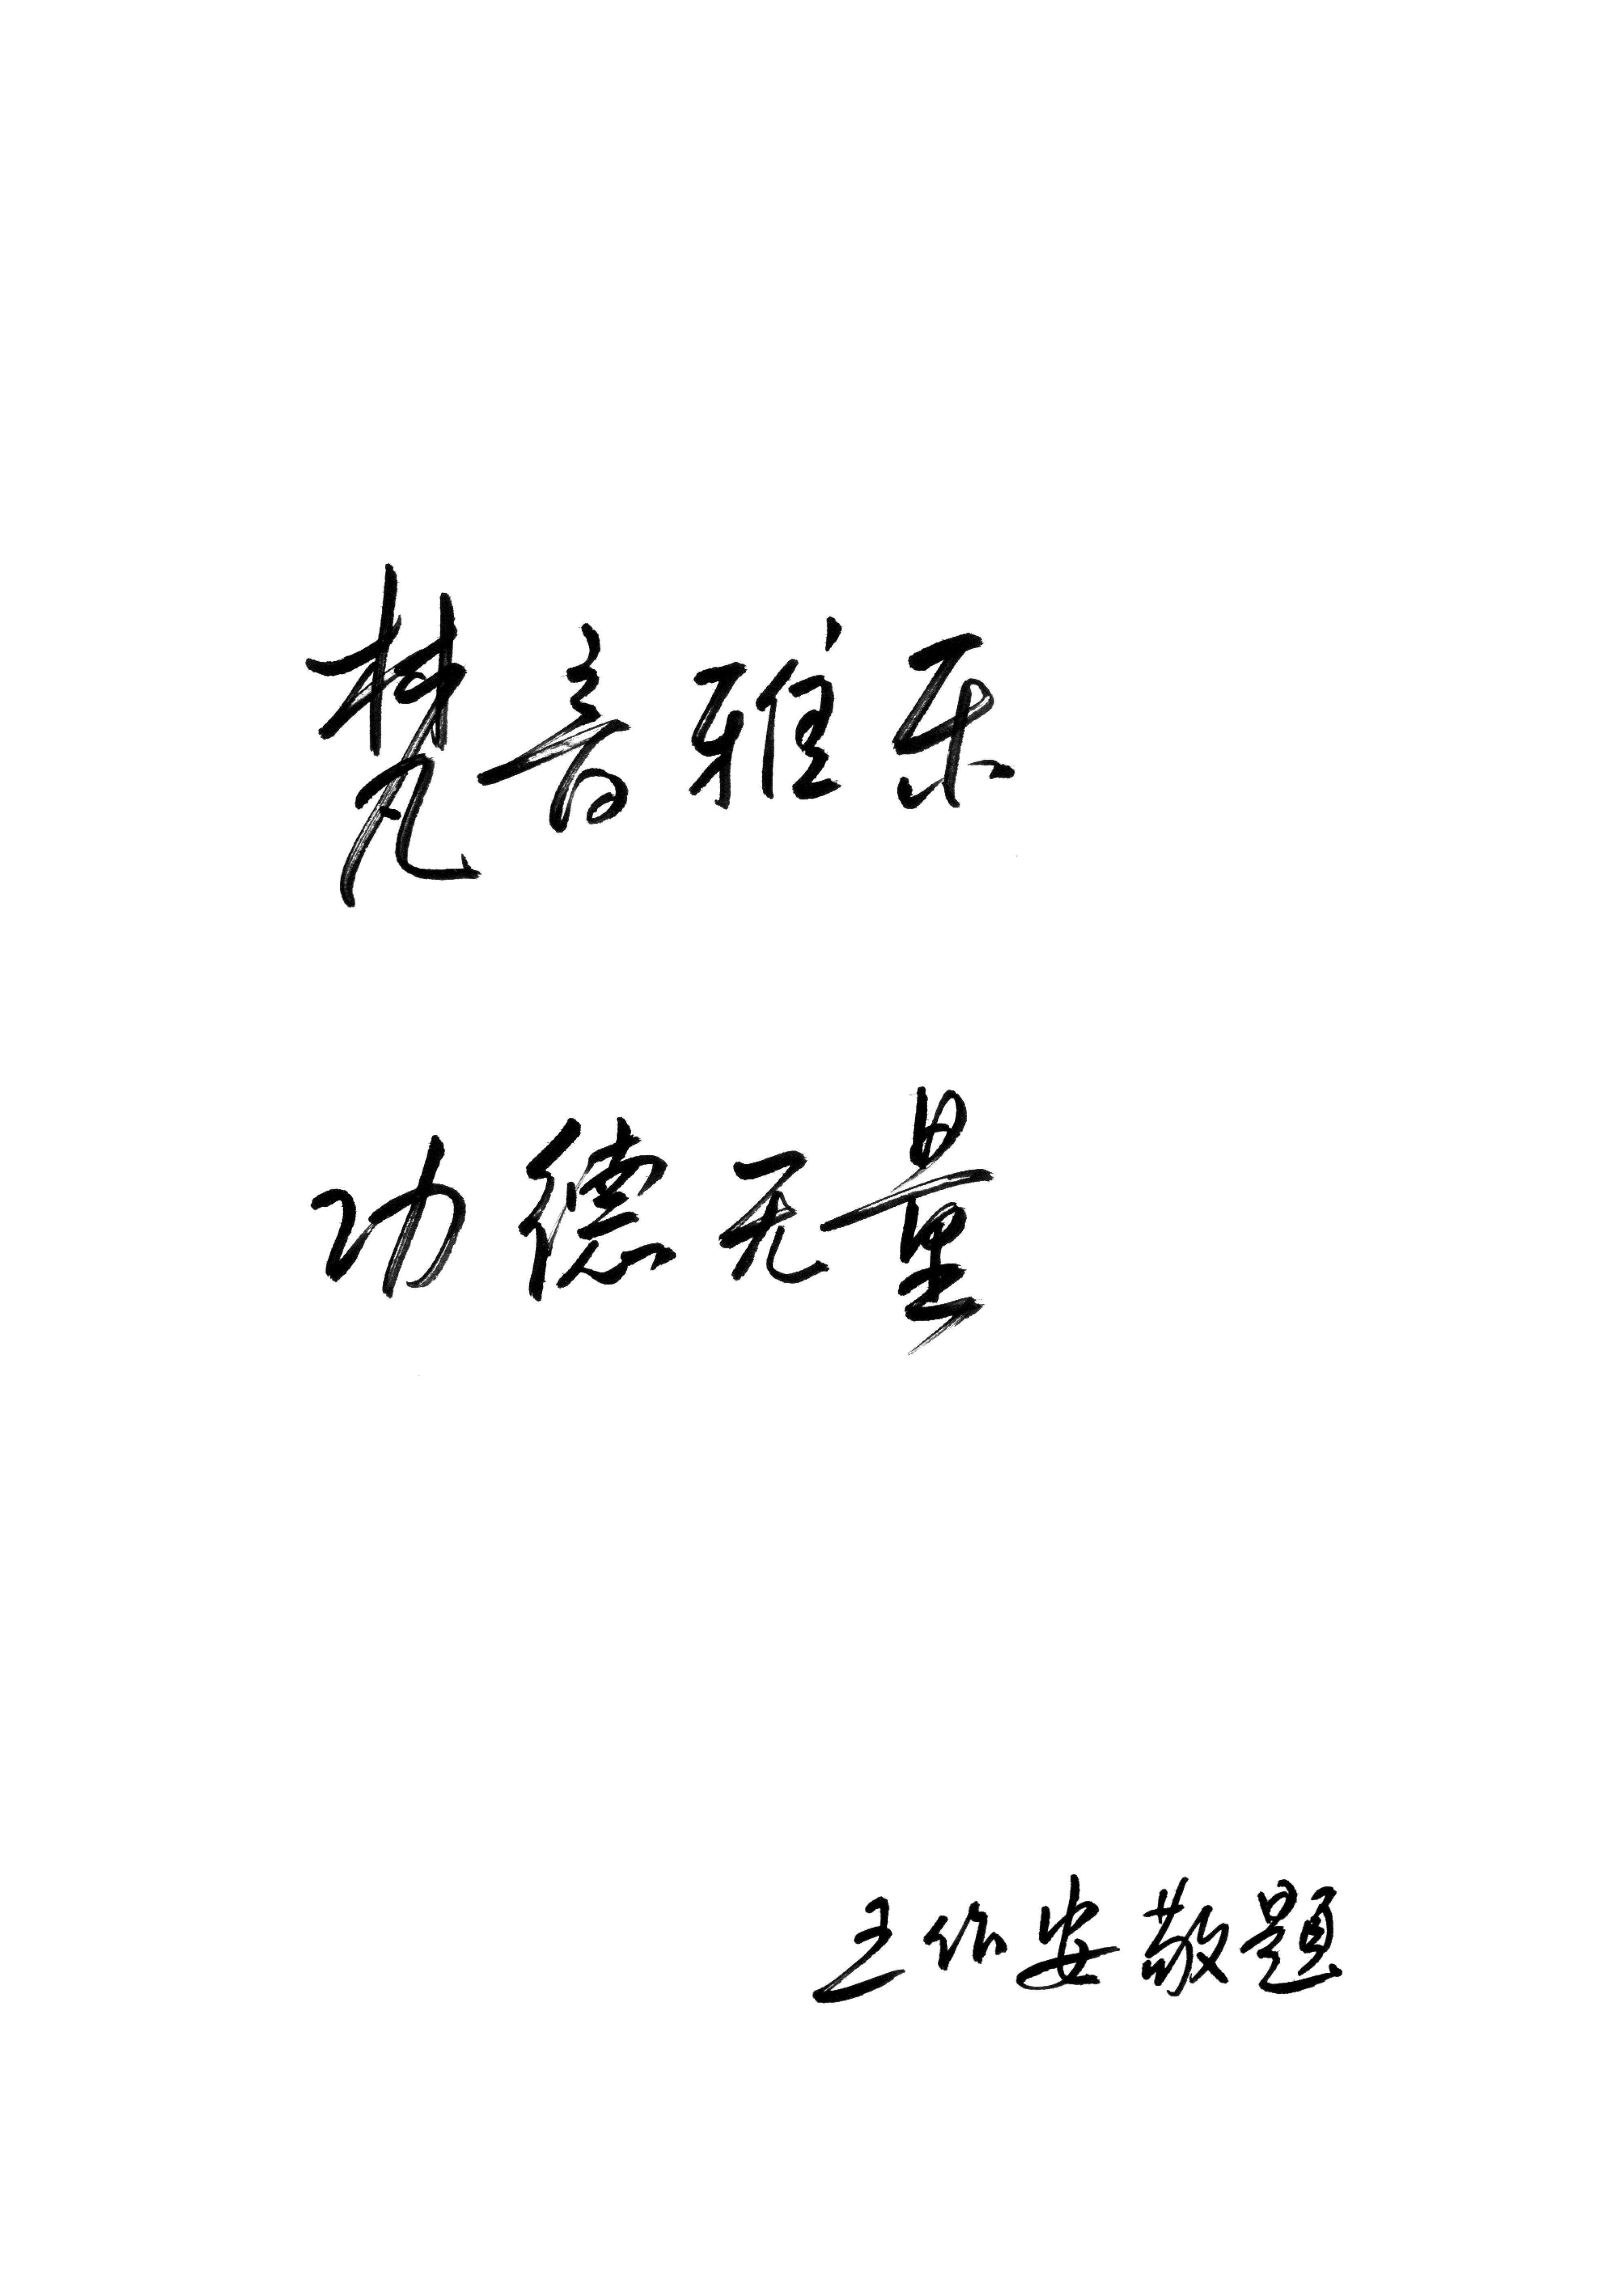 梵音雅乐
功德无量
王作安敬题